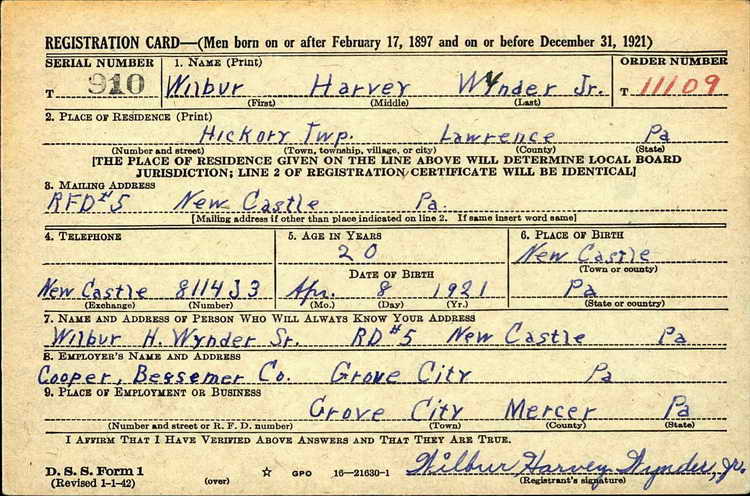 REGISTRATION CARD—(Men born on or after February 17, 1897 and on or before December 31, 1921)
SERIAL NUMBER 1. NAME (Print) ORDER NUMBER
T 910 Wilbur Harvey Wynder Jr. T 11109
(First) (Middle) (Last)
2. PLACE OF RESIDENCE (Print)
Hickory Twp. Lawrence Pa
(Number and street) (Town, township, village, or city) (County) (State)
[THE PLACE OF RESIDENCE GIVEN ON THE LINE ABOVE WILL DETERMINE LOCAL BOARD
JURISDICTION; LINE 2 OF REGISTRATION CERTIFICATE WILL BE IDENTICAL]
3. MAILING ADDRESS
RFD #5 New Castle Pa.
[Mailing address if other than place indicated on line 2. If same insert word same]
4. TELEPHONE 5. AGE IN YEARS 6. PLACE OF BIRTH
20 New Castle
(Town or county)
DATE OF BIRTH
New Castle 8114J3 Apr. 8 1921 Pa
(Exchange) (Number) (Mo.) (Day) (Yr.) (State or country)
7. NAME AND ADDRESS OF PERSON WHO WILL ALWAYS KNOW YOUR ADDRESS
Wilbur H. Wynder Sr. RD #5 New Castle Pa
8. EMPLOYER'S NAME AND ADDRESS
Cooper, Bessemer Co. Grove City Pa
9. PLACE OF EMPLOYMENT OR BUSINESS
Grove City Mercer Pa
(Number and street or R. F. D. number) (Town) (County) (State)
I AFFIRM THAT I HAVE VERIFIED ABOVE ANSWERS AND THAT THEY ARE TRUE.
D. S. S. Form 1 Wilbur Harvey Wynder, Jr.
(Revised 1-1-42) (over) ☆ GPO 16—21630-1 (Registrant's signature)